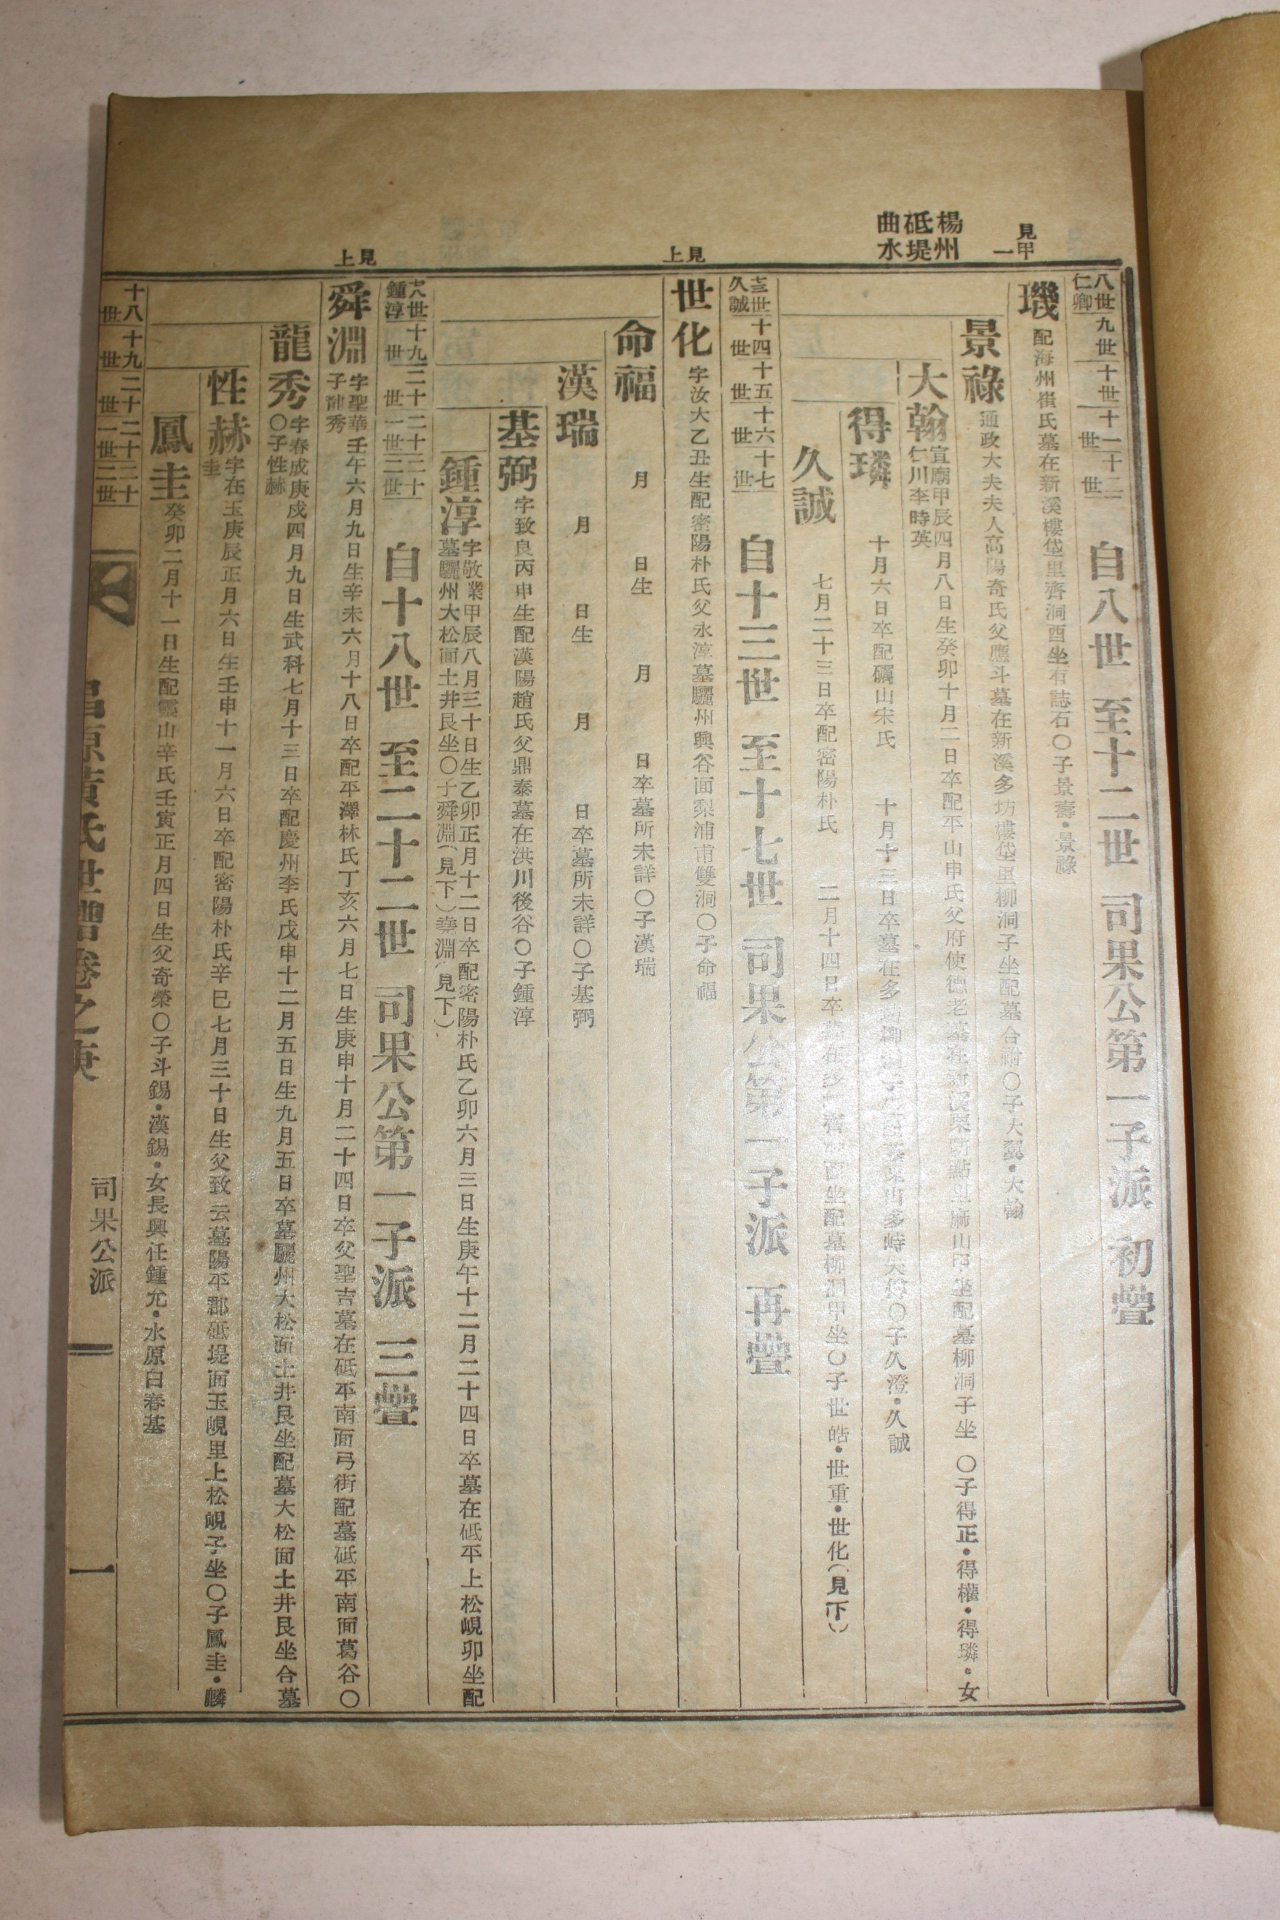 見甲一
楊州
砥堤
曲水
見上
見上
八世 九世 十世 十一世 十二世
仁卿
自八世 至十二世 司果公第一子派 初疊
璣 配海州 氏墓在新溪樓垈里齊洞酉坐有誌石〇子景壽·景祿
景祿 通政大夫夫人高陽奇氏父應斗墓在新溪多坊樓垈里柳洞子坐配墓合祔〇子大翼·大翰
大翰 宣廟甲辰四月八日生癸卯十月二日卒配平山申氏父府使德老墓在 坐配墓柳洞子坐 〇子得正·得權·得璘·女
仁川李時英
得璘 十月六日卒配礪山宋氏 十月十三日卒墓在多 〇子久澄·久誠
久誠 七月二十三日卒配密陽朴氏 二月十四日卒 酉坐配墓柳洞甲坐〇子世皓·世重·世化(見下)
十三世 十四世 十五世 十六世 十七世
久誠
自十三世 至十七世 司果公第一子派 再疊
世化 字汝大乙丑生配密陽朴氏父永淳墓驪州興谷面梨浦甫雙洞〇子命福
命福 月 日生 月 日卒墓所未詳〇子漢瑞
漢瑞 月 日生 月 日卒墓所未詳〇子基弼
基弼 字致良丙申生配漢陽趙氏父鼎泰墓在洪川後谷〇子鍾淳
鍾淳 字敬業甲辰八月三十日生乙卯正月十二日卒配密陽朴氏乙卯六月三日生庚午十二月二十四日卒墓在砥平上松峴卯坐配
墓驪州大松面土井艮坐〇子舜淵(見下)堯淵(見下)
十八世 十九世 二十世 二十一世 二十二世
鍾淳
自十八世 至二十二世 司果公第一子派 三疊
舜淵 字聖華壬午六月九日生辛未六月十八日卒配平澤林氏丁亥六月七日生庚申十月二十四日卒父聖吉墓在砥平南面弓街配墓砥平南面葛谷〇
子龍秀
龍秀 字春成庚戌四月九日生武科七月十三日卒配慶州李氏戊申十二月五日生九月五日卒墓驪州大松面土井艮坐配墓大松面土井艮坐合墓
〇子性赫
性赫 字在玉庚辰正月六日生壬申十一月六日卒配密陽朴氏辛巳七月三十日生父致云墓陽平郡砥堤面玉峴里上松峴子坐〇子鳳圭·麟
圭
鳳圭 癸卯二月十一日生配靈山辛氏壬寅正月四日生父奇榮〇子斗錫·漢錫·女長興任鍾允·水原白春基
十八世 十九世 二十世 二十一世 二十二世
昌原黃氏世譜卷之庚
司果公派
一